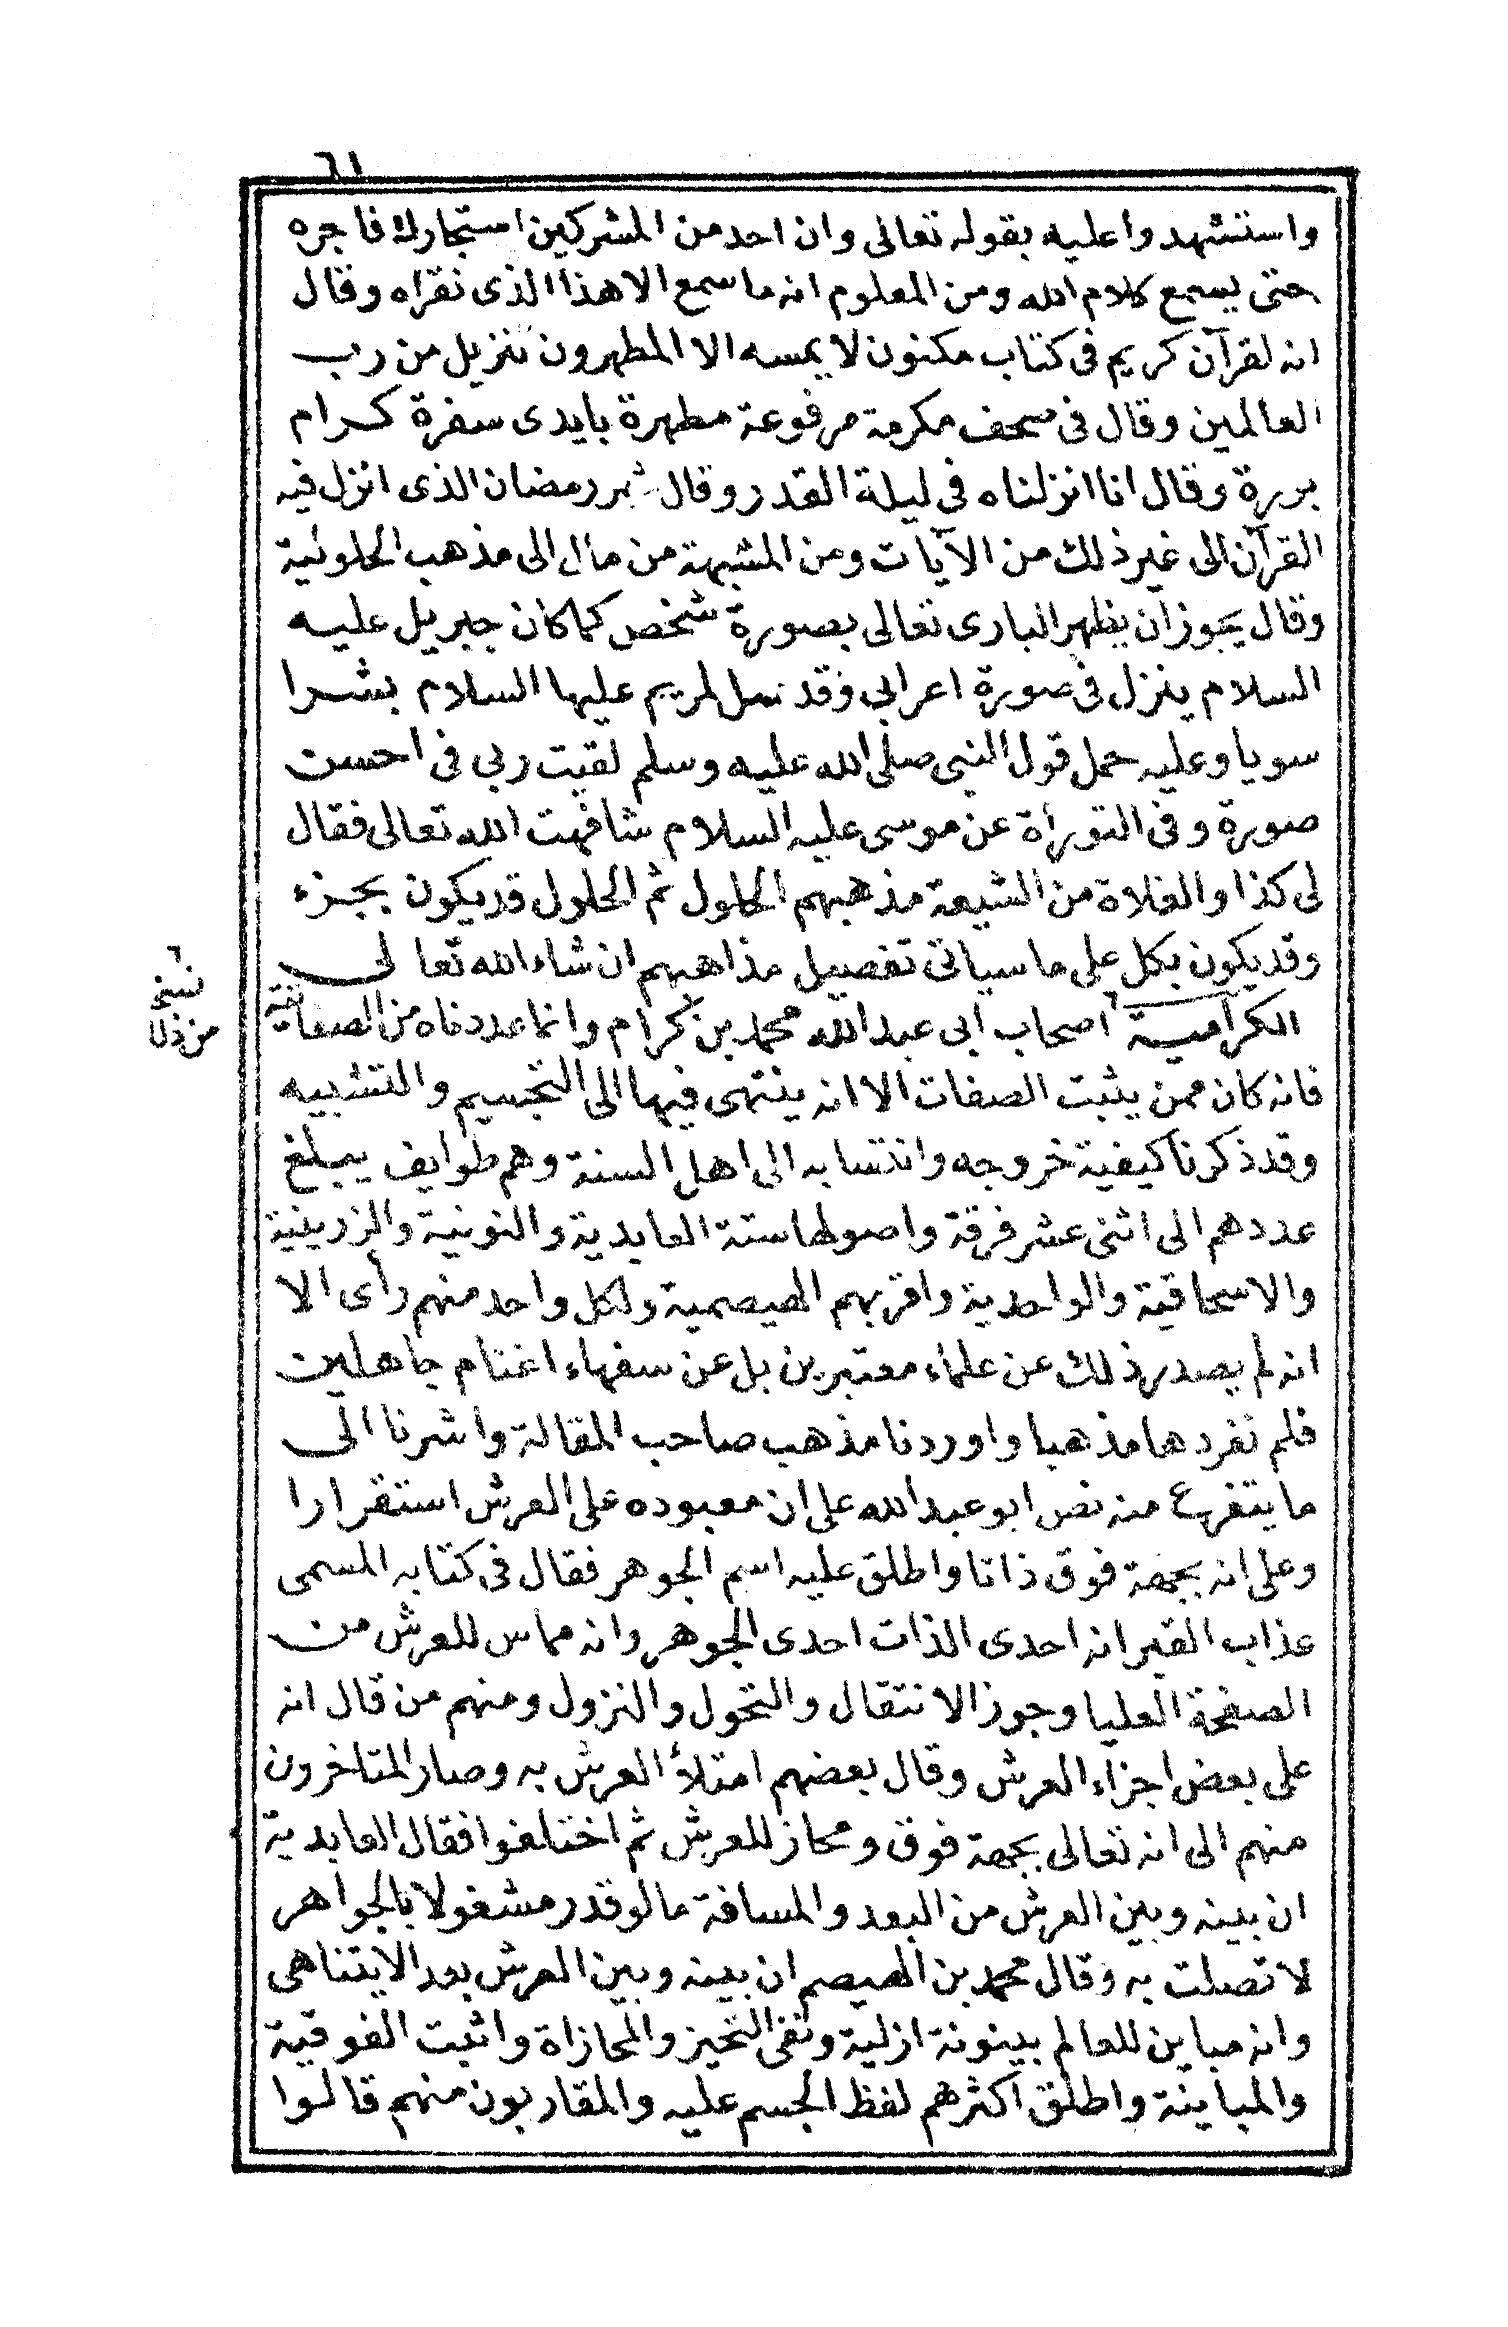 ٦١
واستشهدوا عليه بقوله تعالى وان احد من المشركين استجارك فاجره
حتى يسمع كلام الله ومن المعلوم انه ما سمع الا هذا الذى نقراه وقال
انه لقرآن كريم فى كتاب مكنون لا يمسه الا المطهرون تنزيل من رب
العالمين وقال فى صحف مكرمة مرفوعة مطهرة بايدى سفرة كرام
بررة وقال انا انزلناه فى ليلة القدر وقال شهر رمضان الذى انزل فيه
القرآن الى غير ذلك من الآيات ومن المشبهة من مال الى مذهب الحلولية
وقال يجوز ان يظهر البارى تعالى بصورة شخص كما كان جبريل عليه
السلام ينزل فى صورة اعرابى وقد تمثل لمريم عليها السلام بشرا
سويا وعليه حمل قول النبى صلى الله عليه وسلم لقيت ربى فى احسن
صورة وفى التوراة عن موسى عليه السلام شافهت الله تعالى فقال
لى كذا والغلاة من الشيعة مذهبهم الحلول ثم الحلول قد يكون بجزء
وقد يكون بكل على ما سياتى تفصيل مذاهبهم ان شاء الله تعالى
الكرامية اصحاب ابى عبد الله محمد بن كرام وانما عددناه من الصفاتية
فانه كان ممن يثبت الصفات الا انه ينتهى فيها الى التجسيم والتشبيه
وقد ذكرنا كيفية خروجه وانتسابه الى اهل السنة وهم طوايف يبلغ
عددهم الى اثنى عشر فرقة واصولها ستة العابدية والنونية والزرينية
والاسحاقية والواحدية واقربهم الهيصمية ولكل واحد منهم رأى الا
انه لم يصدر ذلك عن علماء معتبرين بل عن سفهاء اغتام جاهلين
فلم نفردها مذهبا واوردنا مذهب صاحب المقالة واشرنا الى
ما يتفرع منه نص ابو عبد الله على ان معبوده على العرش استقرارا
وعلى انه بجهة فوق ذاتا واطلق عليه اسم الجوهر فقال فى كتابه المسمى
عذاب القبر انه احدى الذات احدى الجوهر وانه مماس للعرش من
الصفحة العليا وجوز الانتقال والتحول والنزول ومنهم من قال انه
على بعض اجزاء العرش وقال بعضهم امتلأ العرش به وصار المتاخرون
منهم الى انه تعالى بجهة فوق ومحاز للعرش ثم اختلفوا فقال العابدية
ان بينه وبين العرش من البعد والمسافة ما لو قدر مشغولا بالجواهر
لاتصلت به وقال محمد بن الهيصم ان بينه وبين العرش بعد الا يتناهى
وانه مباين للعالم بينونة ازلية ونفى التحيز والمحازاة واثبت الفوقية
والمباينة واطلق اكثرهم لفظ الجسم عليه والمقاربون منهم قالوا